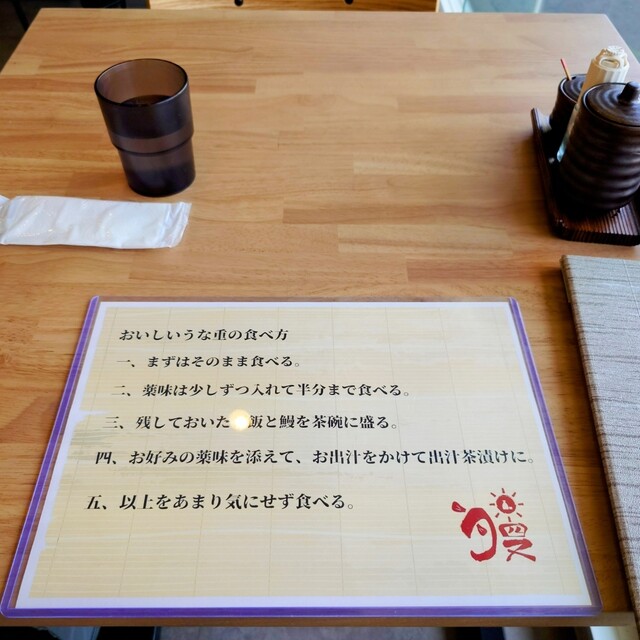 おいしいうな重の食べ方
一、まずはそのまま食べる。
二、薬味は少しずつ入れて半分まで食べる。
三、残しておいた飯と鰻を茶碗に盛る。
四、お好みの薬味を添えて、お出汁をかけて出汁茶漬けに。
五、以上をあまり気にせず食べる。